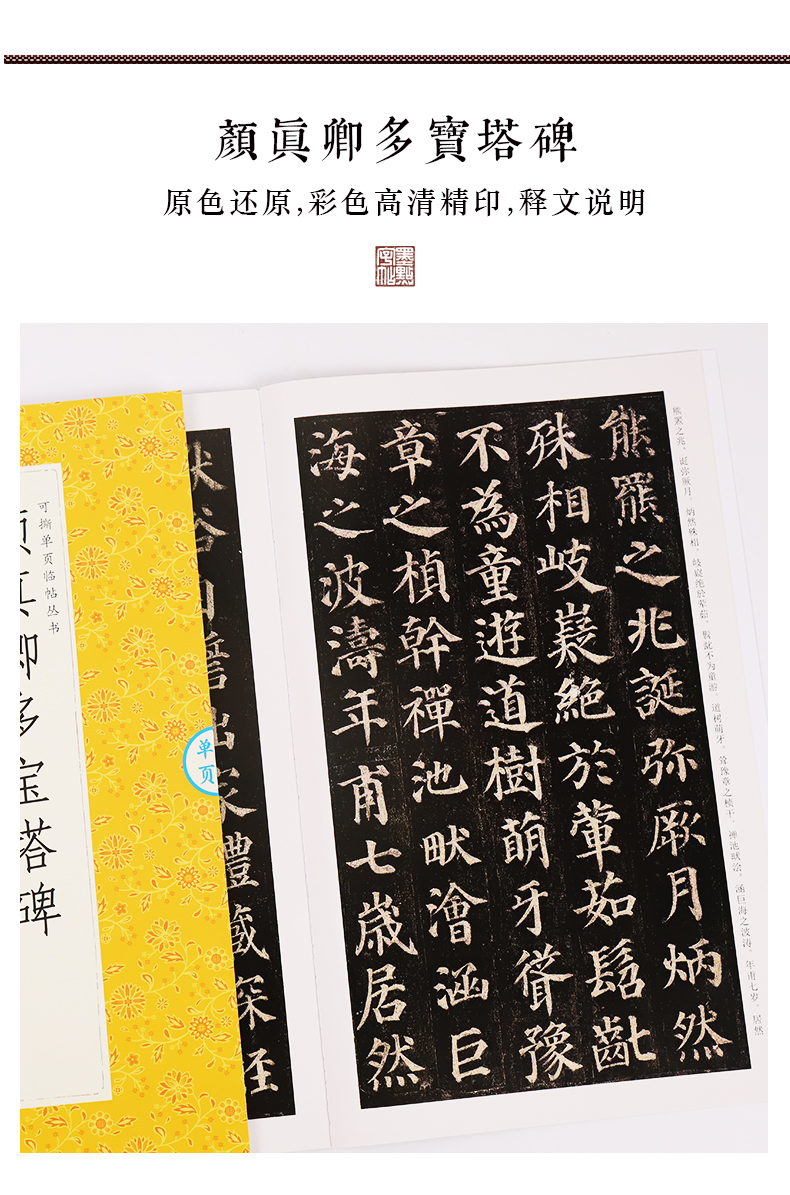 顏眞卿多寶塔碑
原色还原,彩色高清精印,释文说明
墨點字帖
熊罴之兆。诞弥厥月，炳然殊相。岐嶷绝於荤茹，髫龀不为童游。道树萌牙，耸豫章之桢干，禅池畎浍，涵巨海之波涛。年甫七岁，居然
熊羆之兆誕弥厥月炳然
殊相岐嶷絕於葷茹髫齓
不為童遊道樹萌牙聳豫
章之楨幹禪池畎澮涵巨
海之波濤年甫七歲居然
誓出家禮藏探經
单页
可撕单页临帖丛书
颜真卿多宝塔碑